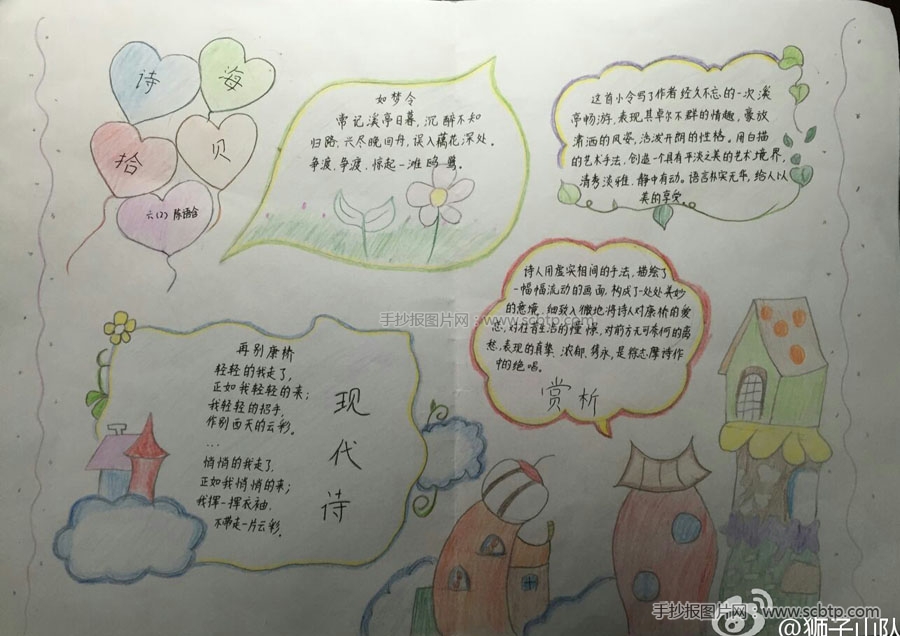 诗
海
拾
贝
六(2) 陈语含
如梦令
常记溪亭日暮,沉醉不知
归路.兴尽晚回舟,误入藕花深处.
争渡,争渡,惊起一滩鸥鹭.
这首小令写了作者经久不忘的一次溪
亭畅游,表现其卓尔不群的情趣,豪放
潇洒的风姿,活泼开朗的性格。用白描
的艺术手法,创造一个具有平淡之美的艺术境界,
清秀淡雅,静中有动。语言朴实无华,给人以
美的享受
诗人用虚实相间的手法,描绘了
一幅幅流动的画面,构成了一处处美妙
的意境,细致入微地将诗人对康桥的爱
恋,对往昔生活的憧憬,对前方无可奈何的离
愁,表现的真挚、浓郁、隽永,是徐志摩诗作
中的绝唱。
赏析
再别康桥
轻轻的我走了,
正如我轻轻的来;
我轻轻的招手,
作别西天的云彩。
...
悄悄的我走了,
正如我悄悄的来;
我挥一挥衣袖,
不带走一片云彩。
现
代
诗
手抄报图片网:www.scbtp.com
手抄报图片网:www.scbtp.com
@狮子山队